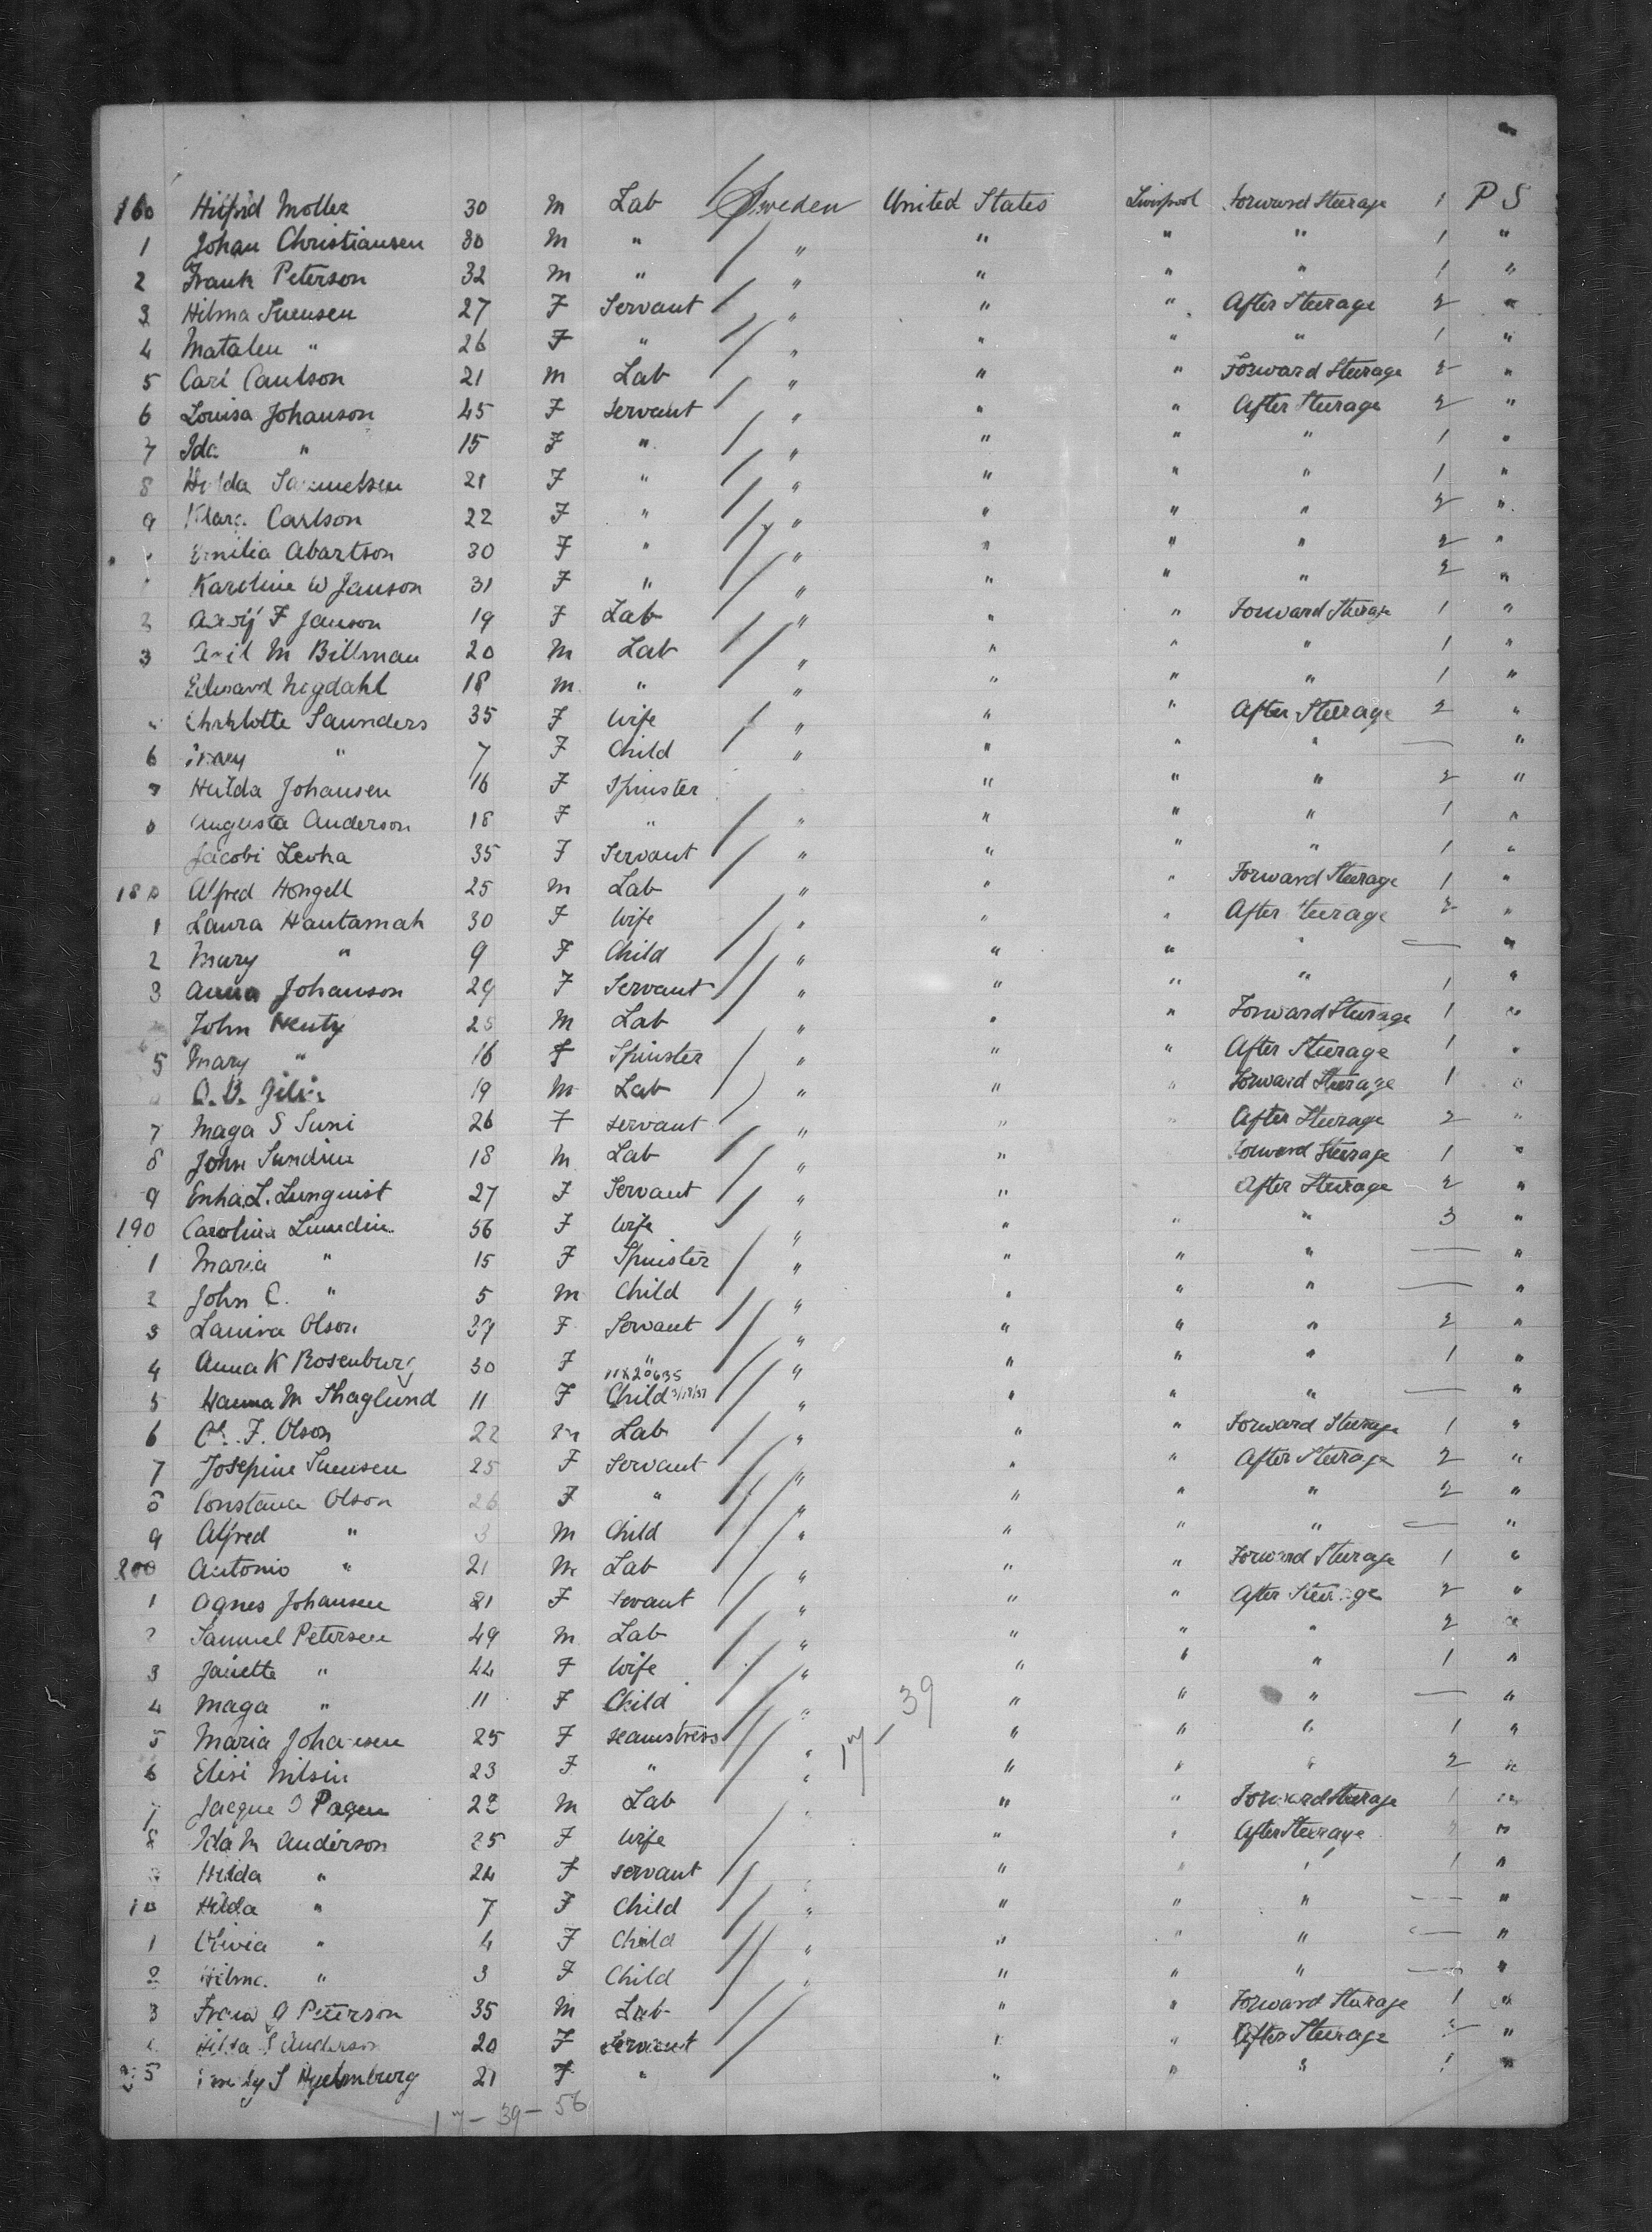 160 Hilfrid Moller 30 M Lab Sweden United States Liverpool Forward Steerage 1 P S
1 Johan Christiansen 30 M " " " " " 1 "
2 Frank Peterson 32 M " " " " " 1 "
3 Hilma Svensen 27 F Servant " " " After Steerage 2 "
4 Matalen " 26 F " " " " " 1 "
5 Carl Caulson 21 M Lab " " " Forward Steerage 2 "
6 Louisa Johanson 45 F Servant " " " After Steerage 2 "
7 Ida " 15 F " " " " " 1 "
8 Hilda Samuelsen 21 F " " " " " 1 "
9 Klara Carlson 22 F " " " " " 2 "
Emilia Abartson 30 F " " " " " 2 "
Karoline W Janson 31 F " " " " " 2 "
F Janson 19 F Lab " " " Forward Steerage 1 "
3 M Billman 20 M Lab " " " " 1 "
Edward Nogdahl 18 M " " " " " 1 "
Charlotte Saunders 35 F Wife " " " After Steerage 2 "
6 " 7 F Child " " " " — "
7 Hulda Johansen 16 F Spinster " " " 2 "
8 Augusta Anderson 18 F " " " " " 1 "
Jacobi Levka 35 F Servant " " " " 1 "
180 Alfred Hongell 25 M Lab " " " Forward Steerage 1 "
1 Laura Hautamah 30 F Wife " " " After Steerage 2 "
2 Mary " 9 F Child " " " " — "
3 Anna Johanson 29 F Servant " " " " 1 "
John Hentz 25 M Lab " " " Forward Steerage 1 "
5 Mary " 16 F Spinster " " " After Steerage 1 "
19 M Lab " " " Forward Steerage 1 "
7 Maga S Suni 26 F Servant " " " After Steerage 2 "
8 John Sundine 18 M Lab " " Forward Steerage 1 "
9 L. Lunquist 27 F Servant " " After Steerage 2 "
190 Carolina Lundin 56 F Wife " " " " 3 "
1 Maria " 15 F Spinster " " " " — "
2 John C. " 5 M Child " " " " — "
3 Olson 37 F Servant " " " " 2 "
4 Anna K Rosenburg 30 F " " " " " 1 "
11X20635
5 Hanna M Shaglund 11 F Child 3/18/37 " " " " — "
6 F. Olson 22 M Lab " " " Forward Steerage 1 "
7 Josephine Svensen 25 F Servant " " " After Steerage 2 "
8 Constance Olson 26 F " " " " " 2 "
9 Alfred " 3 M Child " " " " — "
200 Antonio " 21 M Lab " " " Forward Steerage 1 "
1 Agnes Johansen 21 F Servant " " " After Steerage 2 "
2 Samuel Petersen 49 M Lab " " " " 2 "
3 Janette " 44 F Wife " " " " 1 "
4 Maga " 11 F Child " " " " — "
17 – 39
5 Maria Johansen 25 F Seamstress " " " " 1 "
6 Elisi Nilsin 23 F " " " " " 2 "
7 Jacque Pagen 22 M Lab " " " Forward Steerage 1 "
8 Ida M Anderson 25 F Wife " " After Steerage 2 "
Hilda " 24 F Servant " " " " 1 "
10 Hilda " 7 F Child " " " " — "
1 Olivia " 4 F Child " " " " — "
2 Hilma " 3 F Child " " " " — "
3 A Peterson 35 M Lab " " Forward Steerage 1 "
Hilda S Anderson 20 F Servant " " After Steerage 2 "
5 S Hyelmburg 21 F " " " " 1 "
17 – 39 – 56